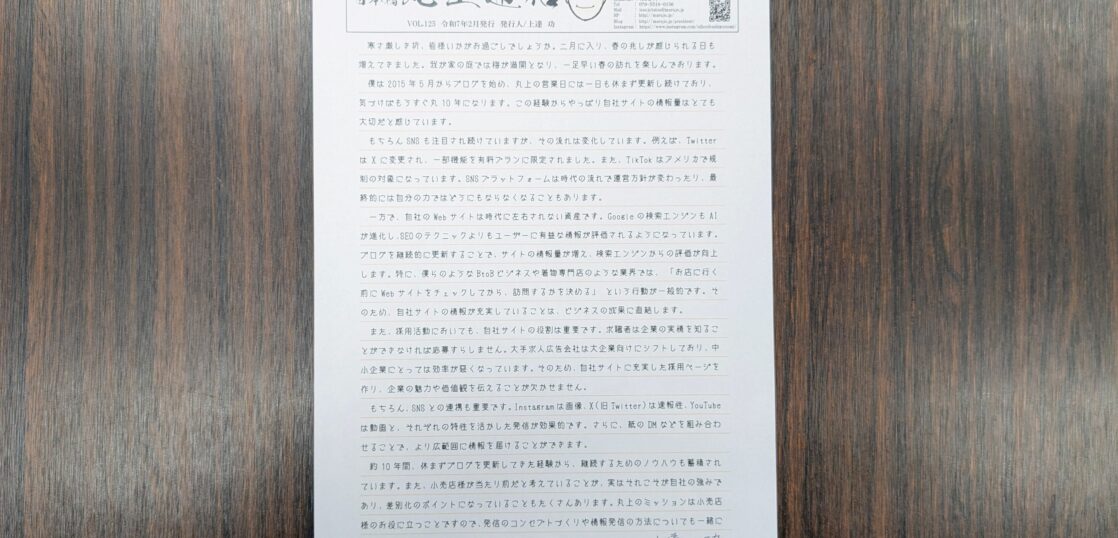 VOL.125 令和7年2月発行 発行人/上達 功
寒さ厳しき折、皆様いかがお過ごしでしょうか。二月に入り、春の兆しが感じられる日も
増えてきました。我が家の庭では梅が満開となり、一足早い春の訪れを楽しんでおります。
僕は2015年5月からブログを始め、丸上の営業日には一日も休まず更新し続けており、
気づけばもうすぐ丸10年になります。この経験からやっぱり自社サイトの情報量はとても
大切だと感じています。
もちろんSNSも注目され続けていますが、その流れは変化しています。例えば、Twitter
はXに変更され、一部機能を有料プランに限定されました。また、TikTokはアメリカで規
制の対象になっています。SNSプラットフォームは時代の流れで運営方針が変わったり、最
終的には自分の力ではどうにもならなくなることもあります。
一方で、自社のWebサイトは時代に左右されない資産です。Googleの検索エンジンもAI
が進化し、SEOのテクニックよりもユーザーに有益な情報が評価されるようになっています。
ブログを継続的に更新することで、サイトの情報量が増え、検索エンジンからの評価が向上
します。特に、僕らのようなBtoBビジネスや着物専門店のような業界では、「お店に行く
前にWebサイトをチェックしてから、訪問するかを決める」という行動が一般的です。そ
のため、自社サイトの情報が充実していることは、ビジネスの成果に直結します。
また、採用活動においても、自社サイトの役割は重要です。求職者は企業の実積を知るこ
とができなければ応募すらしません。大手求人広告会社は大企業向けにシフトしており、中
小企業にとっては効率が悪くなっています。そのため、自社サイトに充実した採用ページを
作り、企業の魅力や価値観を伝えることが欠かせません。
もちろん、SNSとの連携も重要です。Instagramは画像、X(旧Twitter)は速報性、YouTube
は動画と、それぞれの特性を活かした発信が効果的です。さらに、紙のDMなどを組み合わ
せることで、より広範囲に情報を届けることができます。
約10年間、休まずブログを更新してきた経験から、継続するためのノウハウも蓄積され
ています。また、小売店様が当たり前だと考えていることが、実はそれこそが自社の強みで
あり、差別化のポイントになっていることもたくさんあります。丸上のミッションは小売店
様のお役に立つことですので、発信のコンセプトづくりや情報発信の方法についても一緒に